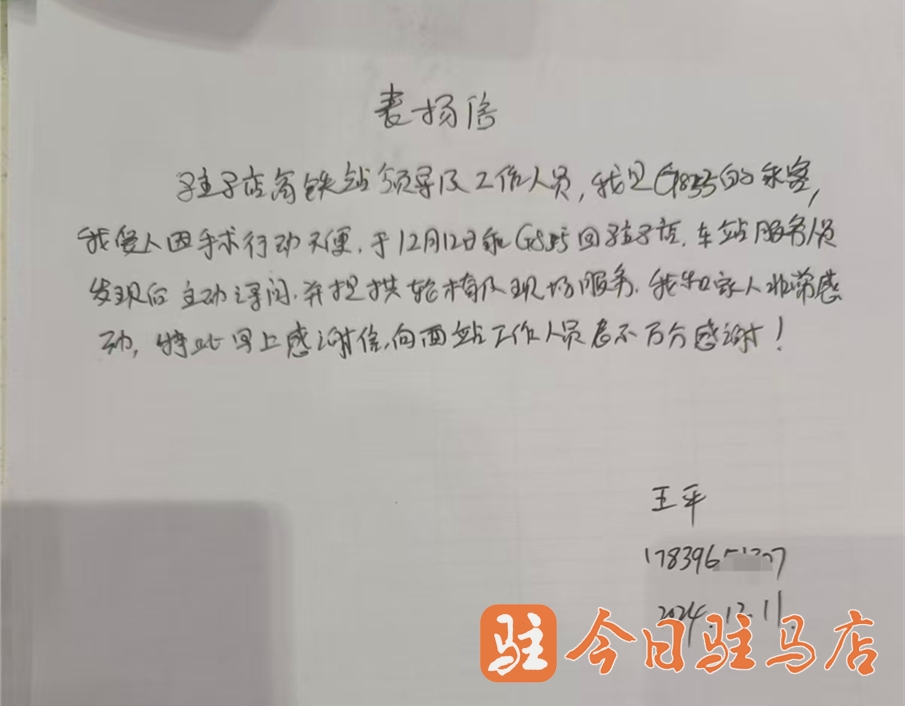 表扬信
驻马店高铁站领导及工作人员，我是G855的乘客，
我爱人因手术行动不便，于12月12日乘G855回驻马店，车站服务人员
发现后主动询问，并提供轮椅及现场服务，我和家人非常感
动，特此写上感谢信，向西站工作人员表示万分感谢！
王平
178396
2024.12.11.
驻 今日驻马店